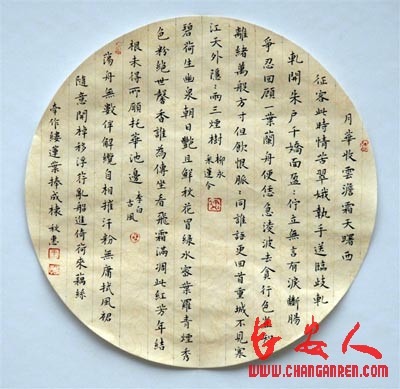 月華收雲澹霜天曙西
征客此時情苦翠娥執手送臨歧軋
軋開朱戶千嬌面盈〻佇立無言有淚斷腸
爭忍回顧一葉蘭舟便恁急凌波去貪行色豈知
離緒萬般方寸但飲恨脈〻同誰語更回首重城不見寒
江天外隱〻兩三煙樹 柳永
采蓮令
碧荷生幽泉朝日艷且鮮秋花冒綠水密葉羅青煙秀
色粉絕世馨香誰為傳坐看飛霜滿凋此紅芳年結
根未得所願托華池邊 李白
古風
蕩舟無數伴解纜自相催汗粉無庸拭風裙
隨意開棹移浮荇亂船進倚荷來藕絲
牽作縷蓮葉捧成杯 秋惠
长安人
WWW.CHANGANREN.COM